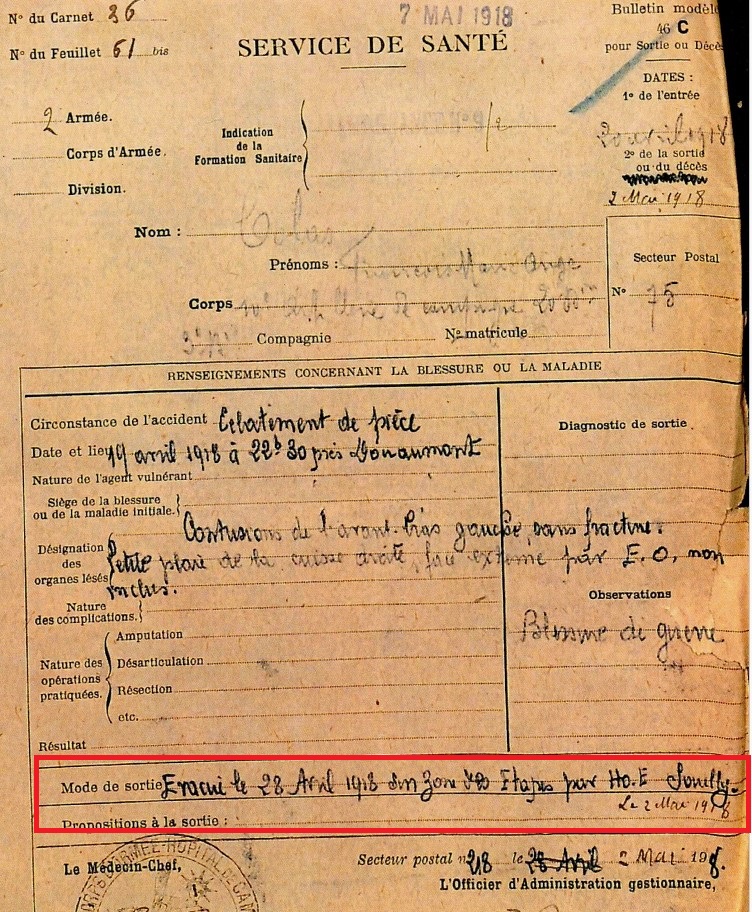 N° du Carnet 26
7 MAI 1918
Bulletin modèle
46 C
N° du Feuillet 61 bis
SERVICE DE SANTÉ
pour Sortie ou Décès
DATES :
1° de l'entrée
2 Armée.
Corps d'Armée.
Division.
Indication
de la
Formation Sanitaire
20 avril 1918
2° de la sortie
ou du décès
2 Mai 1918
Nom : Colas
Prénoms : François Marie Ange
Secteur Postal
N° 75
Corps
Compagnie N° matricule
RENSEIGNEMENTS CONCERNANT LA BLESSURE OU LA MALADIE
Circonstance de l'accident Eclatement de pièce
Date et lieu 19 avril 1918 à 22h30 près Douaumont
Nature de l'agent vulnérant
Siège de la blessure
ou de la maladie initiale.
Désignation
des
organes lésés
Contusions de l'avant-bras gauche, sans fracture.
Petite plaie de la cuisse droite, face externe par E.O, non
inclus.
Nature
des complications.
Nature des
opérations
pratiquées.
Amputation
Désarticulation
Résection
etc.
Résultat
Diagnostic de sortie
Observations
Blessure de guerre
Mode de sortie Evacué le 28 Avril 1918 Zone des Etapes par Ho.E Souilly.
Le 2 Mai 1918
Propositions à la sortie :
Le Médecin-Chef,
Secteur postal n° 218 le 28 Avril 2 Mai 1918.
L'Officier d'Administration gestionnaire,